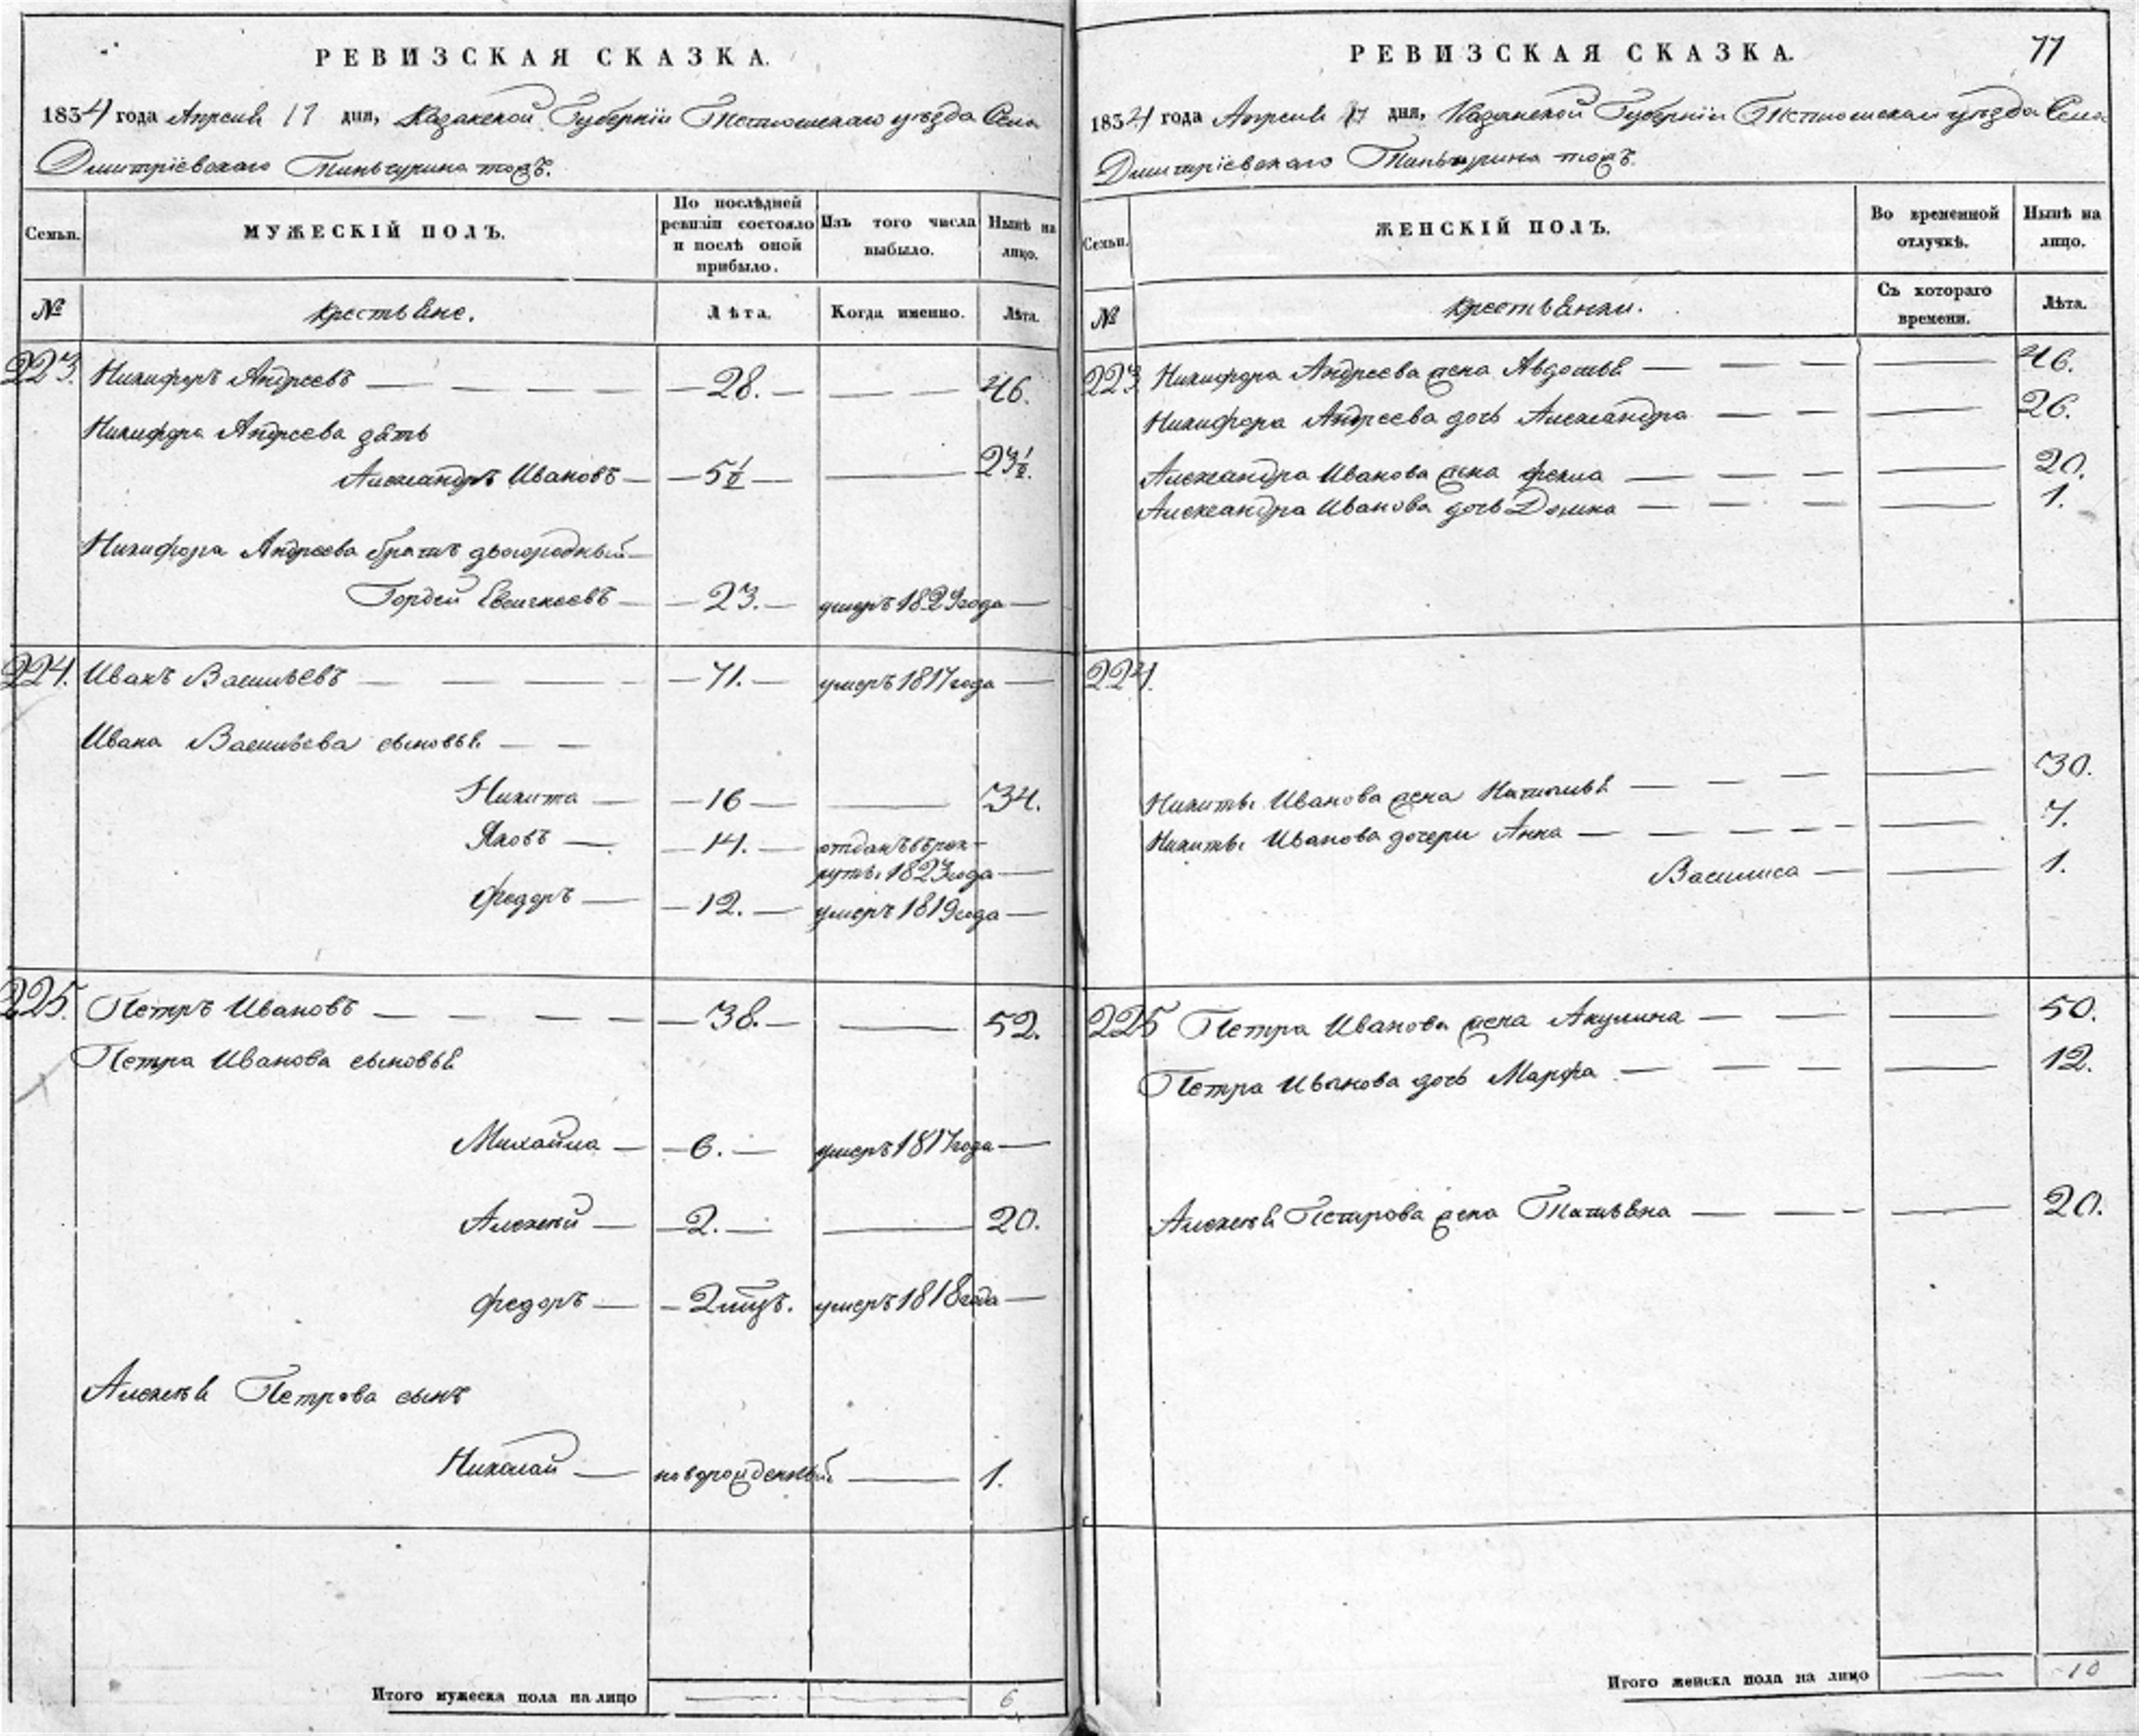 РЕВИЗСКАЯ СКАЗКА.
1834 года Апреля 17 дня, Казанской Губернiи Тетюшскаго уезда Села
Дмитрiевскаго Тиньчурина тожъ.
Семьи.
МУЖЕСКIЙ ПОЛЪ.
По послѣдней ревизiи состояло и послѣ оной прибыло.
Изъ того числа выбыло.
Нынѣ на лицо.
№
Крестьяне.
Лѣта.
Когда именно.
Лѣта.
223. Никифоръ Андреевъ — 28. — 46.
Никифора Андреева дѣти
Александръ Ивановъ — 5½ — 23½.
Никифора Андреева братъ двоюродный
Гордей — 23. — умеръ 1829 года —
224. Иванъ Васильевъ — 71. — умеръ 1817 года —
Ивана Васильева сыновья
Никита — 16 — 34.
Яковъ — 14. — отданъ въ рек-
руты 1823 года —
Федоръ — 12. — умеръ 1819 года —
225. Петръ Ивановъ — 38. — 52.
Петра Иванова сыновья
Михайла — 6. — умеръ 1817 года —
Алексѣй — 2. — 20.
Федоръ — 2 мцъ. умеръ 1818 года —
Алексѣя Петрова сынъ
Николай — новорожденный — 1.
Итого мужеска пола на лицо — — 6
РЕВИЗСКАЯ СКАЗКА. 77
1834 года Апреля 17 дня, Казанской Губернiи Тетюшскаго уезда Села
Дмитрiевскаго Тиньчурина тожъ.
Семьи.
ЖЕНСКIЙ ПОЛЪ.
Во временной отлучкѣ.
Нынѣ на лицо.
№
Крестьянки.
Съ котораго времени.
Лѣта.
223 Никифора Андреева жена Авдотья — 46.
Никифора Андреева дочь Александра — 26.
Александра Иванова жена Фекла — 20.
Александра Иванова дочь Домна — 1.
224.
Никиты Иванова жена Наталья — 30.
Никиты Иванова дочери Анна — 7.
Василиса — 1.
225 Петра Иванова жена Акулина — 50.
Петра Иванова дочь Марфа — 12.
Алексѣя Петрова жена Татьяна — 20.
Итого женска пола на лицо — 10